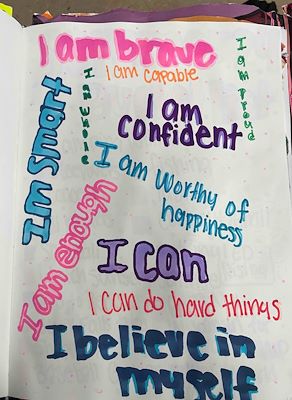 I am brave
I am capable
I am proud
I am whole
I am
confident
Im Smart
I am worthy of
happiness
I am enough
I can
I can do hard things
I believe in
myself